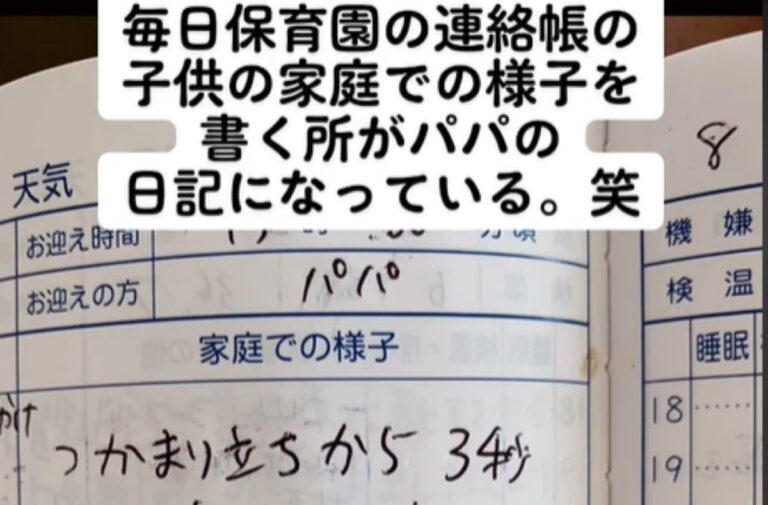 毎日保育園の連絡帳の
子供の家庭での様子を
書く所がパパの
日記になっている。笑
天気
お迎え時間
お迎えの方 パパ
家庭での様子
つかまり立ちから 3秒
8
機嫌
検温
睡眠
18
19